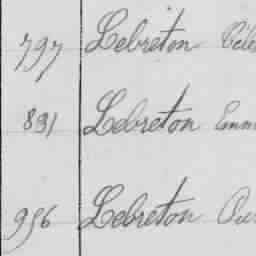 797 Lebreton Céle
891 Lebreton Emm
956 Lebreton